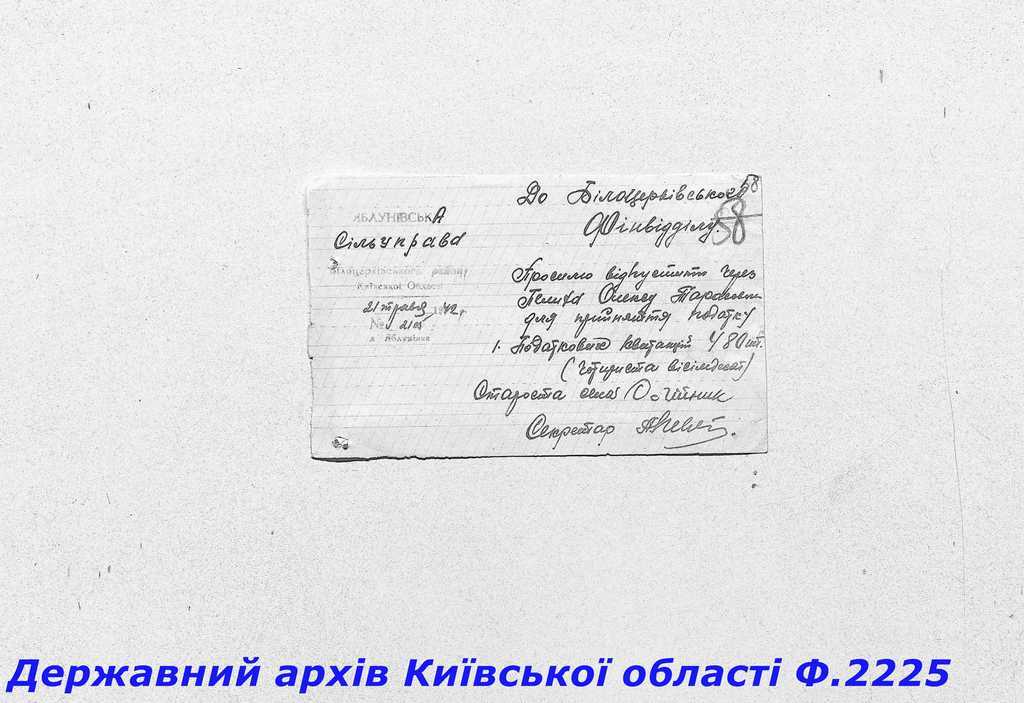 58
До Білоцерківського
58
Фінвідділу.
ЯБЛУНІВСЬКА
Сільуправа
Білоцерківського району
Київської Області
21 травня 1942 р
№
с Яблунівка
Просимо відпустити через
для прийняття податку
1. Податкових квитанцій 480 шт.
(чотириста вісімдесят)
Староста села Олійник
Секретар
Державний архів Київської області Ф.2225